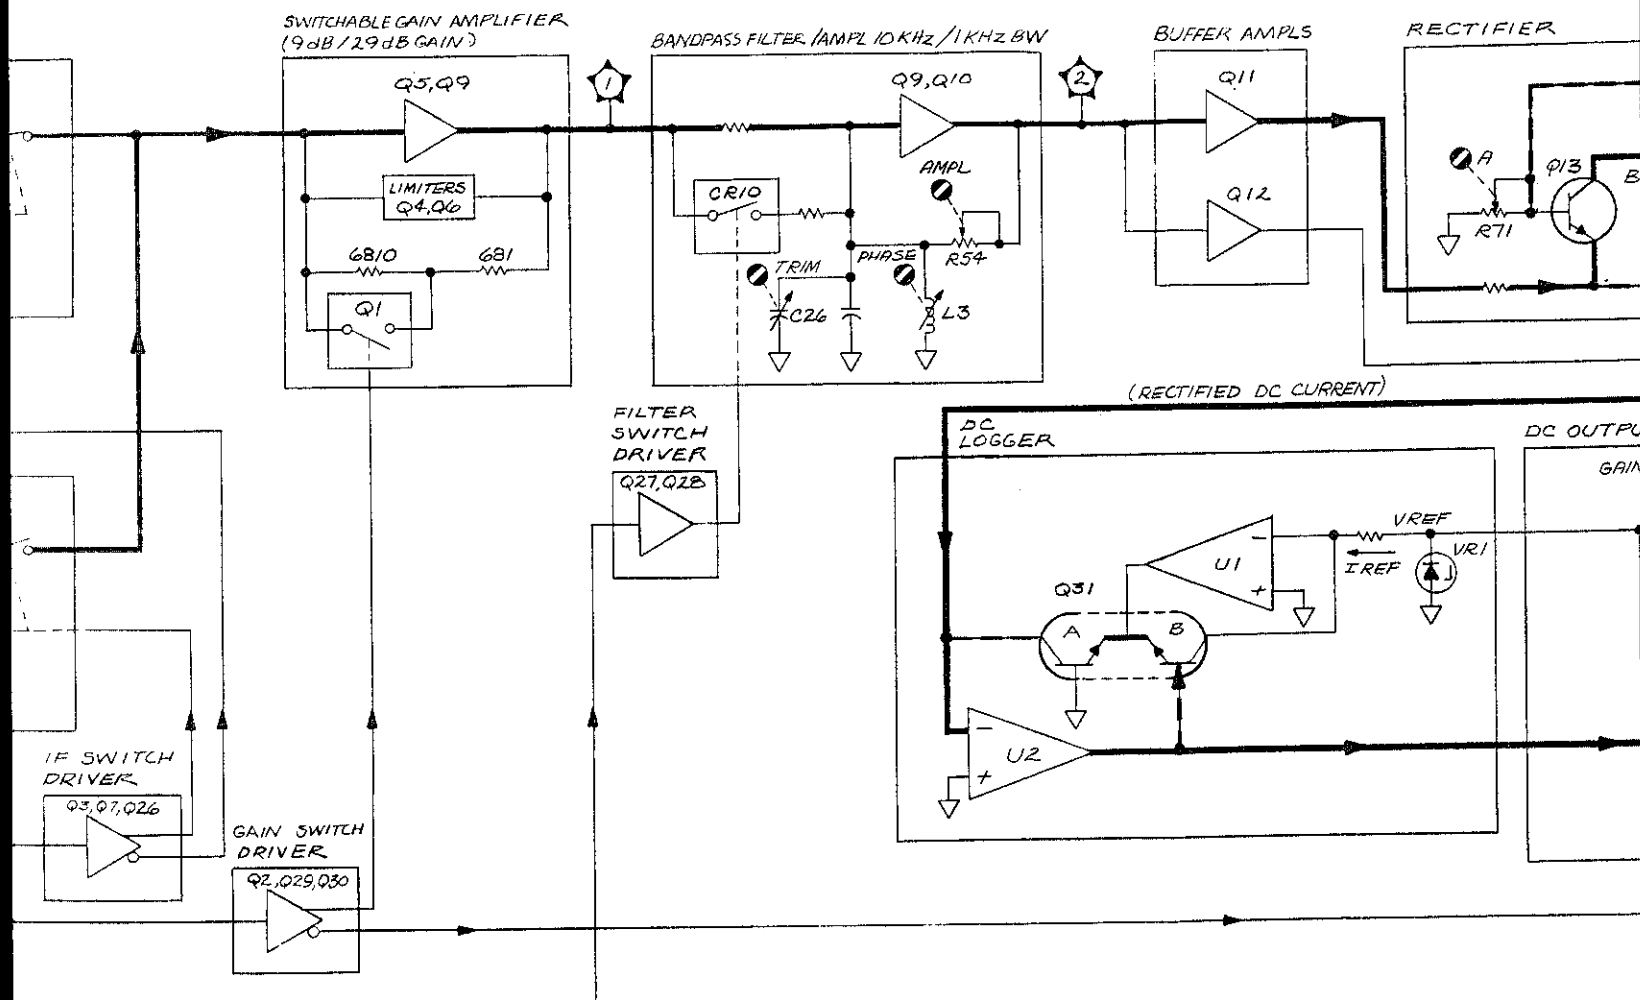 SWITCHABLE GAIN AMPLIFIER
(9dB/29dB GAIN)
Q5,Q9
LIMITERS
Q4,Q6
6810
681
Q1
1
BANDPASS FILTER/AMPL 10KHz/1KHz BW
Q9,Q10
AMPL
CR10
R54
PHASE
TRIM
C26
L3
2
BUFFER AMPLS
Q11
Q12
RECTIFIER
A
Q13
B
R71
(RECTIFIED DC CURRENT)
FILTER
SWITCH
DRIVER
Q27,Q28
DC
LOGGER
VREF
VR1
IREF
U1
-
+
Q31
A
B
U2
-
+
DC OUTPU
GAIN
IF SWITCH
DRIVER
Q3,Q7,Q26
GAIN SWITCH
DRIVER
Q2,Q29,Q30